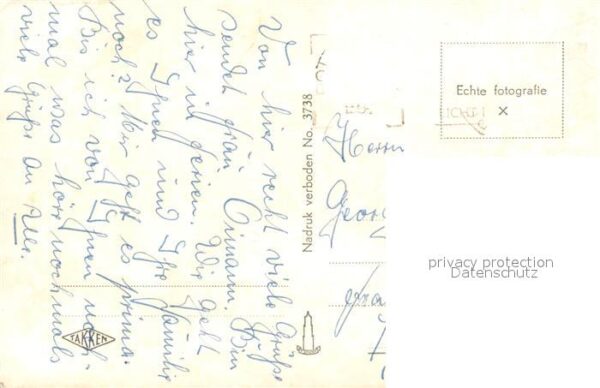 Von hier recht viele Grüße
sendet Frau Timann. Bin
hier in Ferien. Wie geht
es Ihnen und Ihre Familie
noch? Mir geht es prima.
Bin ich von Ihnen noch-
mal was hör nochmals
viele Grüße an Alle.
Nadruk verboden No. 3738
TAKKEN
Echte fotografie
X
Herrn
Georg
privacy protection
Datenschutz